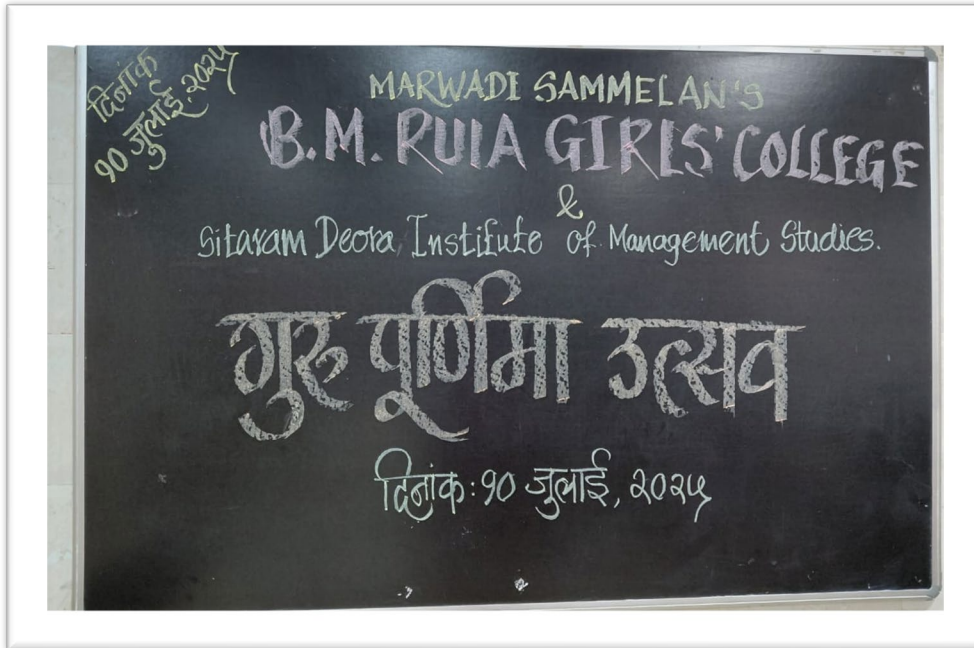 दिनांक
१० जुलाई, २०२५
MARWADI SAMMELAN'S
B.M. RUIA GIRLS' COLLEGE
&
Sitaram Deora Institute of Management Studies.
गुरु पूर्णिमा उत्सव
दिनांक: १० जुलाई, २०२५